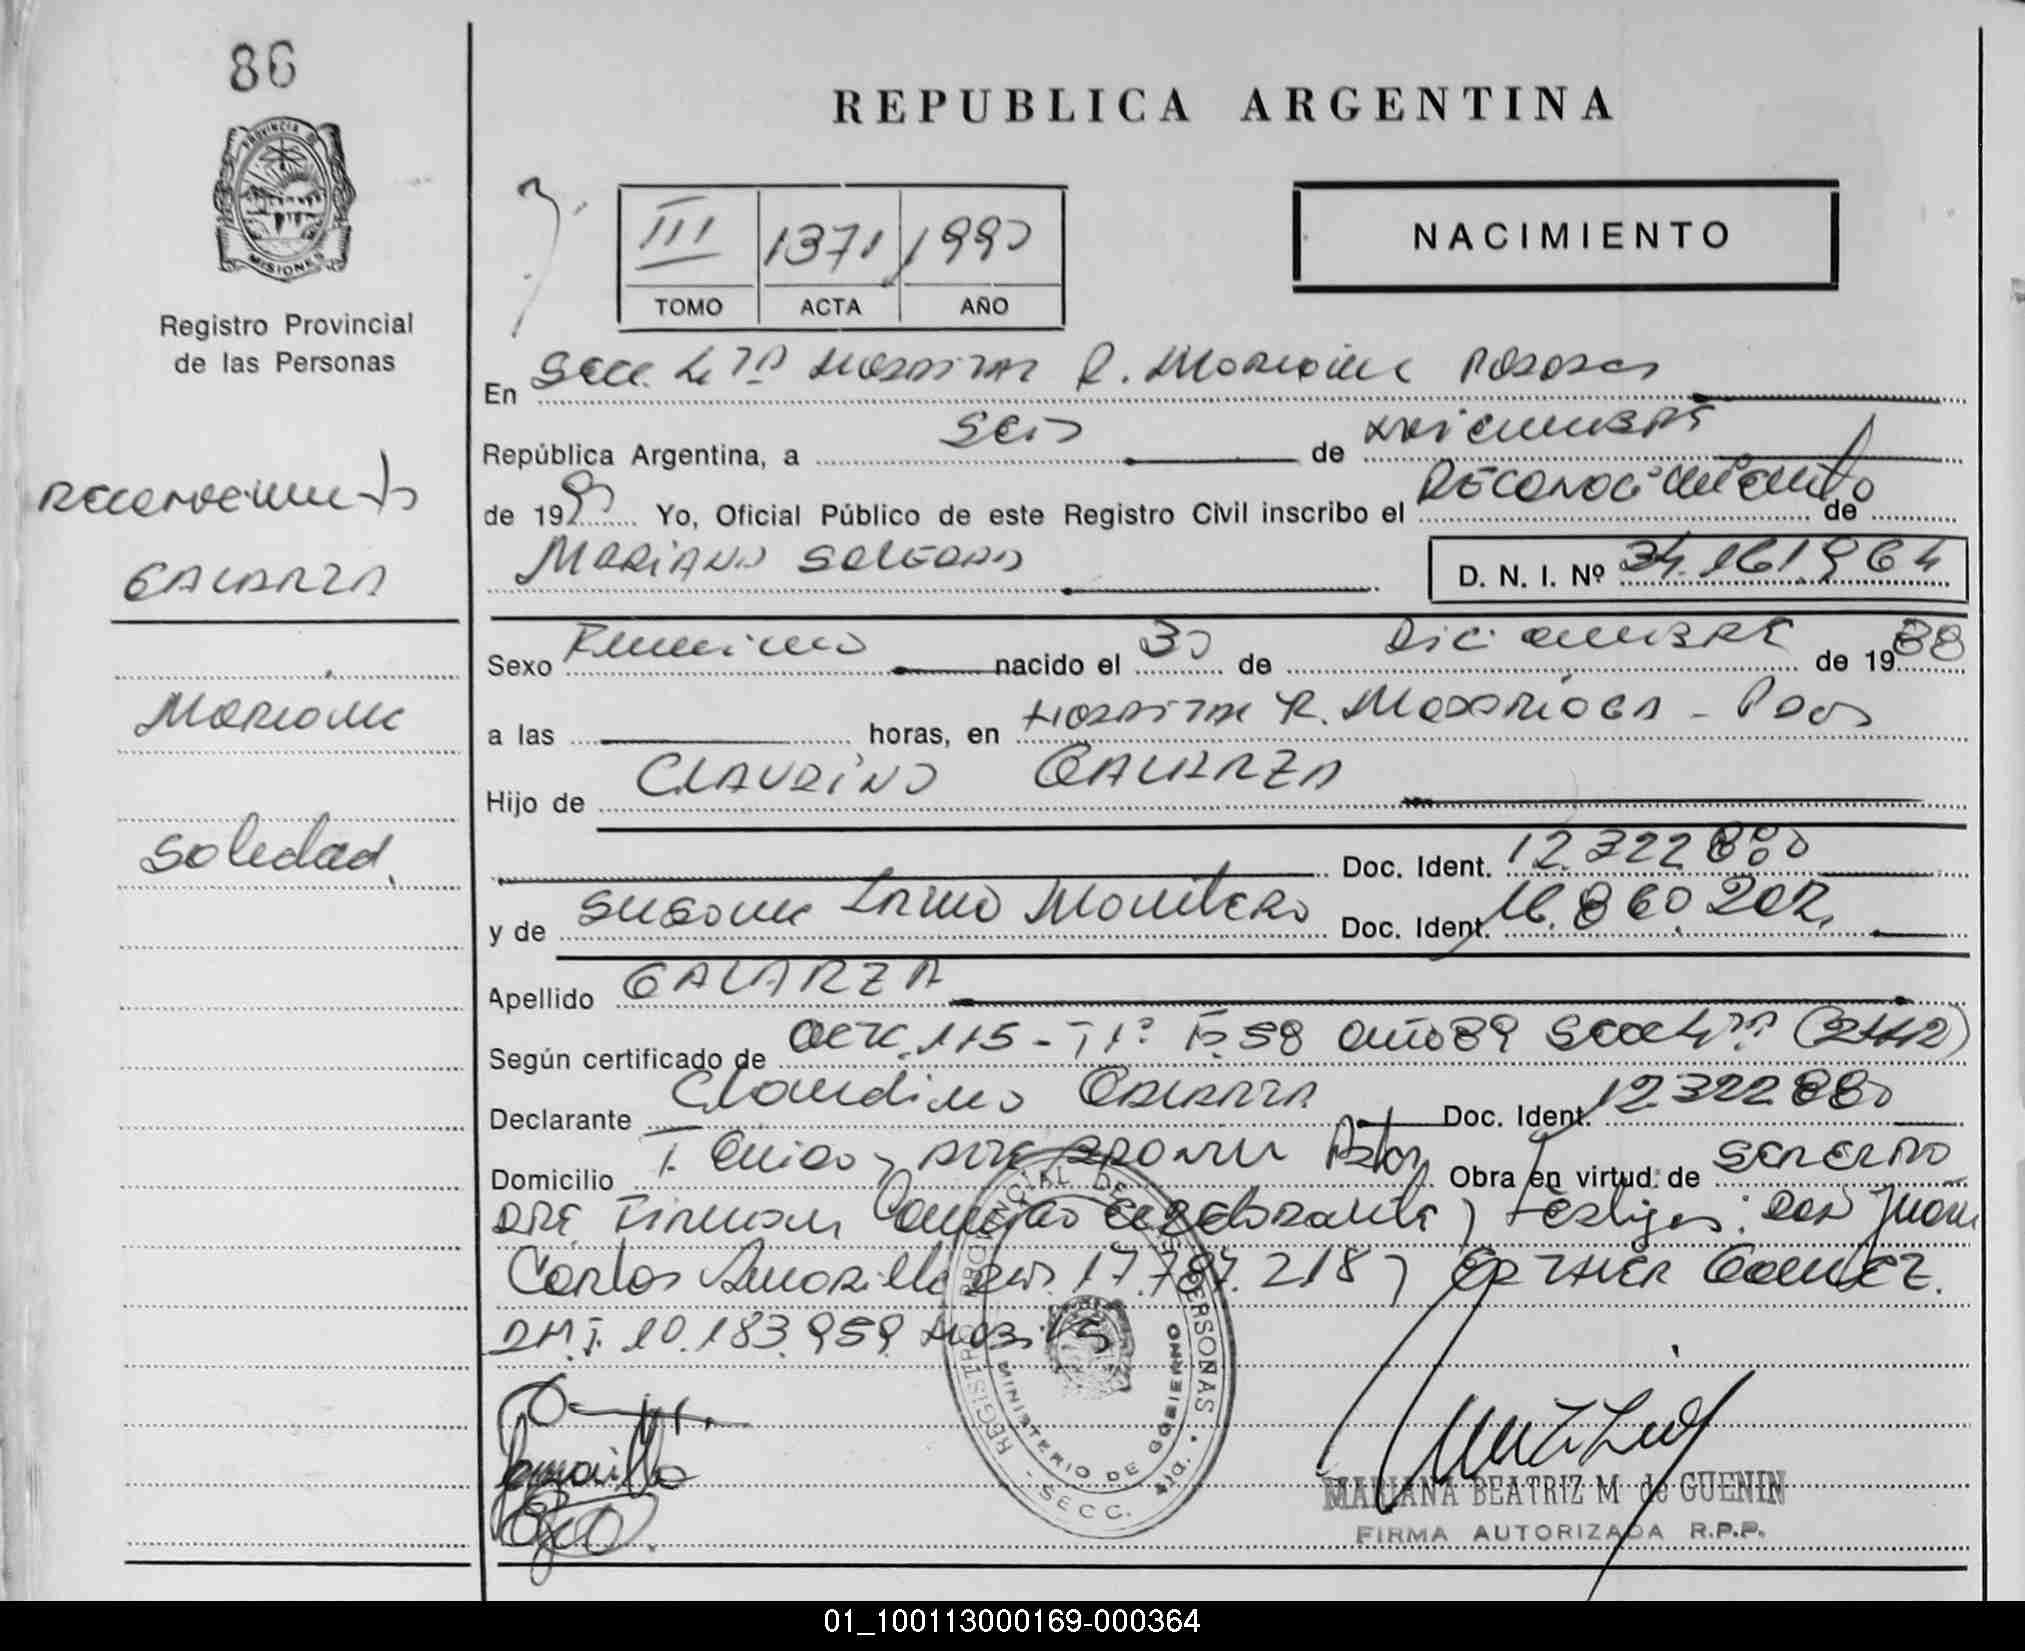 86
REPUBLICA ARGENTINA
PROVINCIA DE
MISIONES
Registro Provincial
de las Personas
III 1371 1990
TOMO ACTA AÑO
NACIMIENTO
En Secc. 4ta Hospital R. Posadas
República Argentina, a Seis de diciembre
de 1990 Yo, Oficial Público de este Registro Civil inscribo el Reconocimiento de
Mariana Soledad D. N. I. Nº 34.161.964
Reconocimiento
GALARZA
Mariana
Soledad
Sexo Femenino nacido el 30 de Diciembre de 1988
a las horas, en Hospital R. Madariaga - Pdas
Hijo de CLAUDINO GALARZA
Doc. Ident. 12.322.880
y de Susana Irma Doc. Ident. 16.860.202
Apellido GALARZA
Según certificado de Acta 115 - Tº 1º Fº 58 año 89 Secc 4ta (2442)
Declarante Claudino Galarza Doc. Ident. 12.322.880
Domicilio Obra en virtud: de
Firman declarante y testigos: Don Juan
Carlos DNI. 17.787.218 y Gomez.
DNI. 10.183.959
REGISTRO PROVINCIAL DE LAS PERSONAS
MINISTERIO DE GOBIERNO
SECC. 4ta.
MARIANA BEATRIZ M de GUENIN
FIRMA AUTORIZADA R.P.P.
01_100113000169-000364